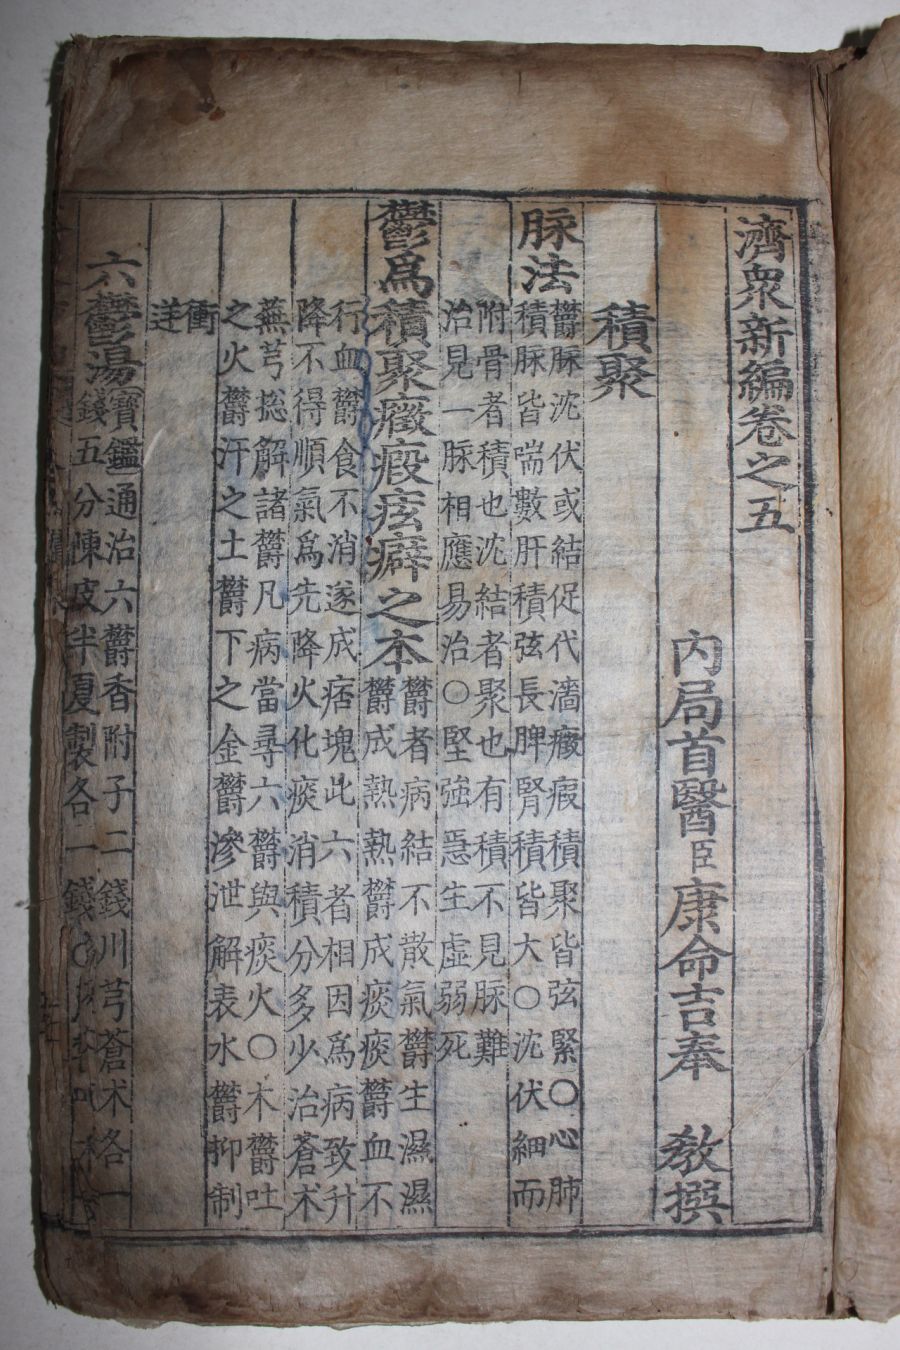 濟衆新編卷之五
內局首醫臣康命吉奉 敎撰
積聚
脉法
欝脉沈伏或結促代濇癥瘕積聚皆弦緊〇心肺
積脉皆喘數肝積弦長脾腎積皆大〇沈伏細而
附骨者積也沈結者聚也有積不見脉難
治見一脉相應易治〇堅強急生虛弱死
鬱爲積聚癥瘕痃癖之本
欝者病結不散氣欝生濕濕
欝成熱熱欝成痰痰欝血不
行血欝食不消遂成痞塊此六者相因爲病致升
降不得順氣爲先降火化痰消積分多少治蒼朮
蕪芎摠解諸欝凡病當尋六欝與痰火〇木欝吐
之火欝汗之土欝下之金欝滲泄解表水欝抑制
衝
逆
六鬱湯
寶鑑通治六欝香附子二錢川芎蒼朮各一
錢五分陳皮半夏製各一錢〇